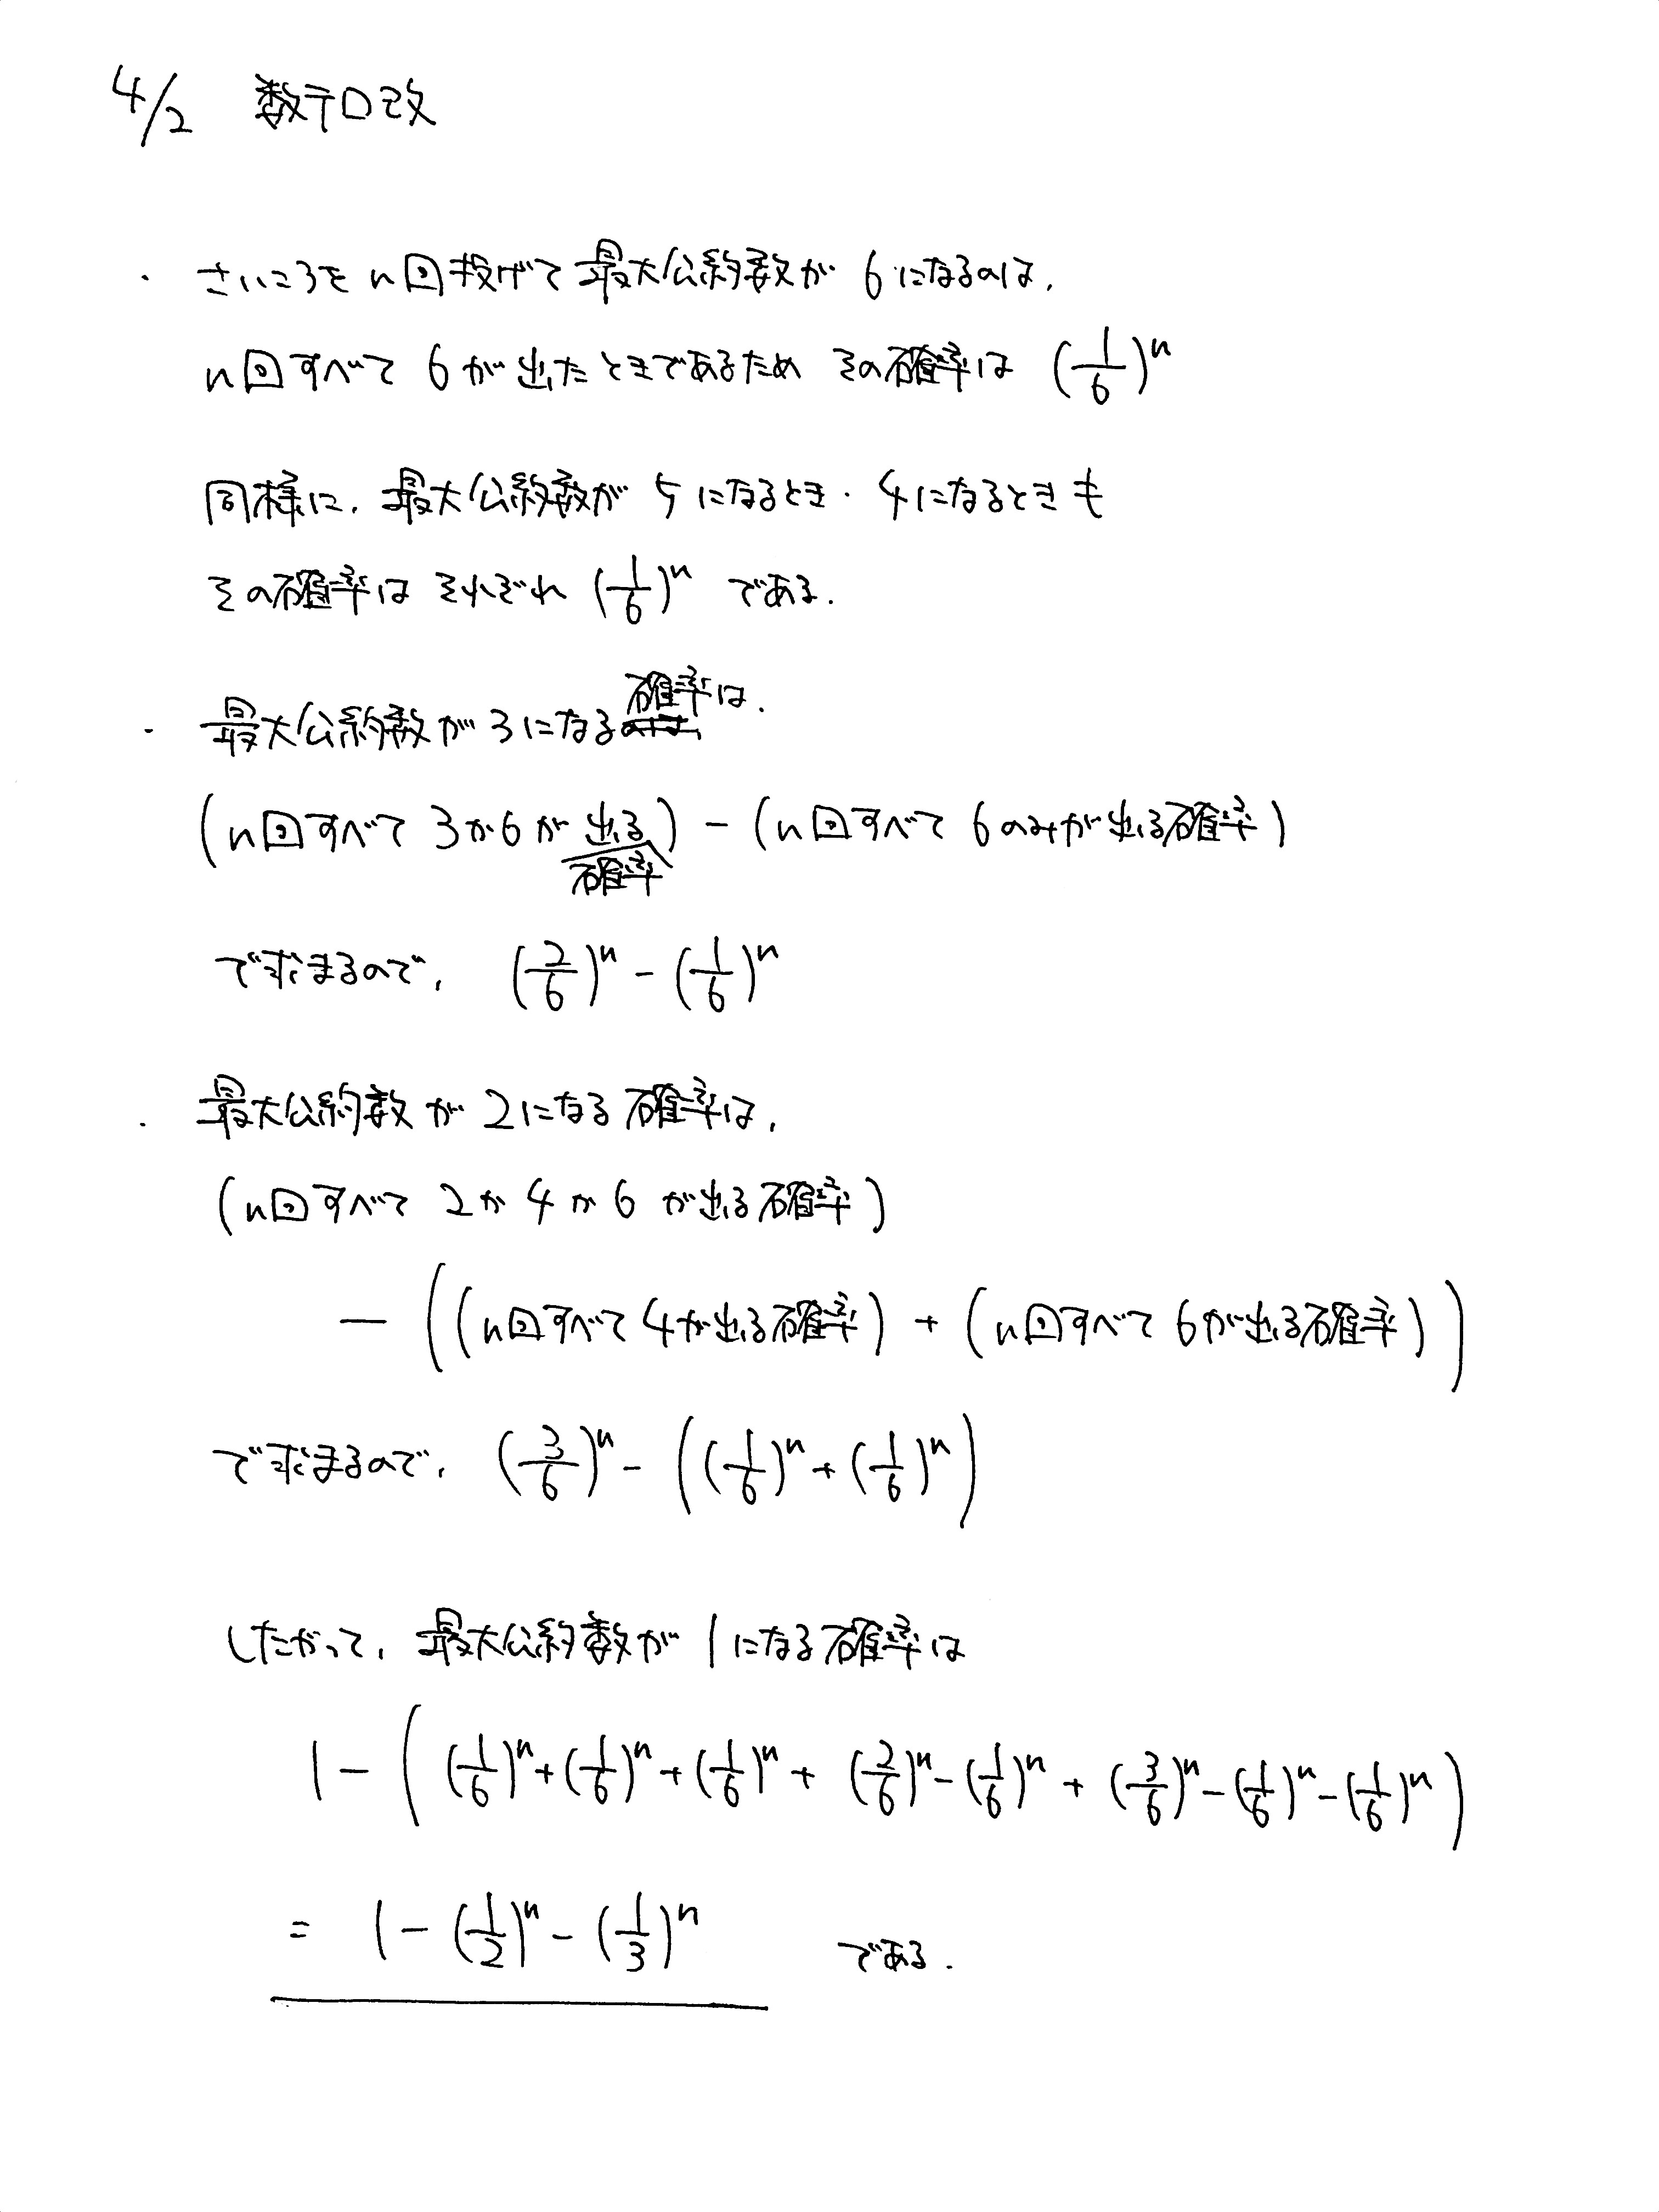 4/2 数テロ改
・ さいころを n回投げて最大公約数が 6になるのは、
n回すべて 6が出たときであるため その確率は (1/6)^n
同様に、最大公約数が 5になるとき・4になるときも
その確率は それぞれ (1/6)^n である.
・ 最大公約数が3になる確率は、
(n回すべて 3か6が出る確率) − (n回すべて 6のみが出る確率)
で求まるので、 (2/6)^n − (1/6)^n
・ 最大公約数が 2になる確率は、
(n回すべて 2か4か6 が出る確率)
− ((n回すべて4が出る確率) + (n回すべて6が出る確率))
で求まるので、 (3/6)^n − ((1/6)^n + (1/6)^n)
したがって、最大公約数が 1になる確率は
1 − ((1/6)^n + (1/6)^n + (1/6)^n + (2/6)^n − (1/6)^n + (3/6)^n − (1/6)^n − (1/6)^n)
= 1 − (1/2)^n − (1/3)^n である.